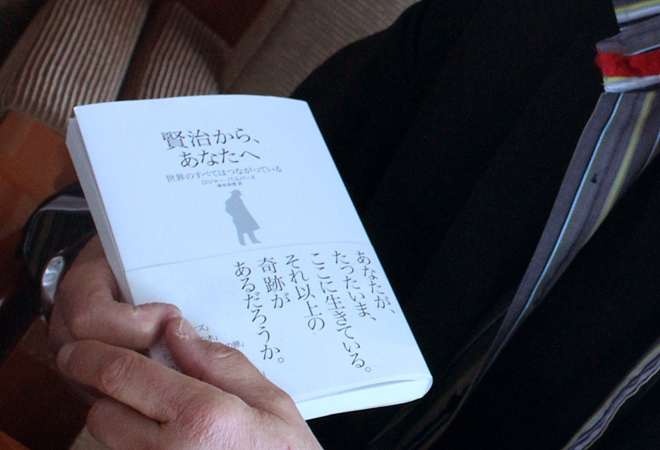 賢治から、
あなたへ
世界のすべてはつながっている
ロジャー・パルバース
あなたが、
たったいま、
ここに生きている。
それ以上の
奇跡が
あるだろうか。